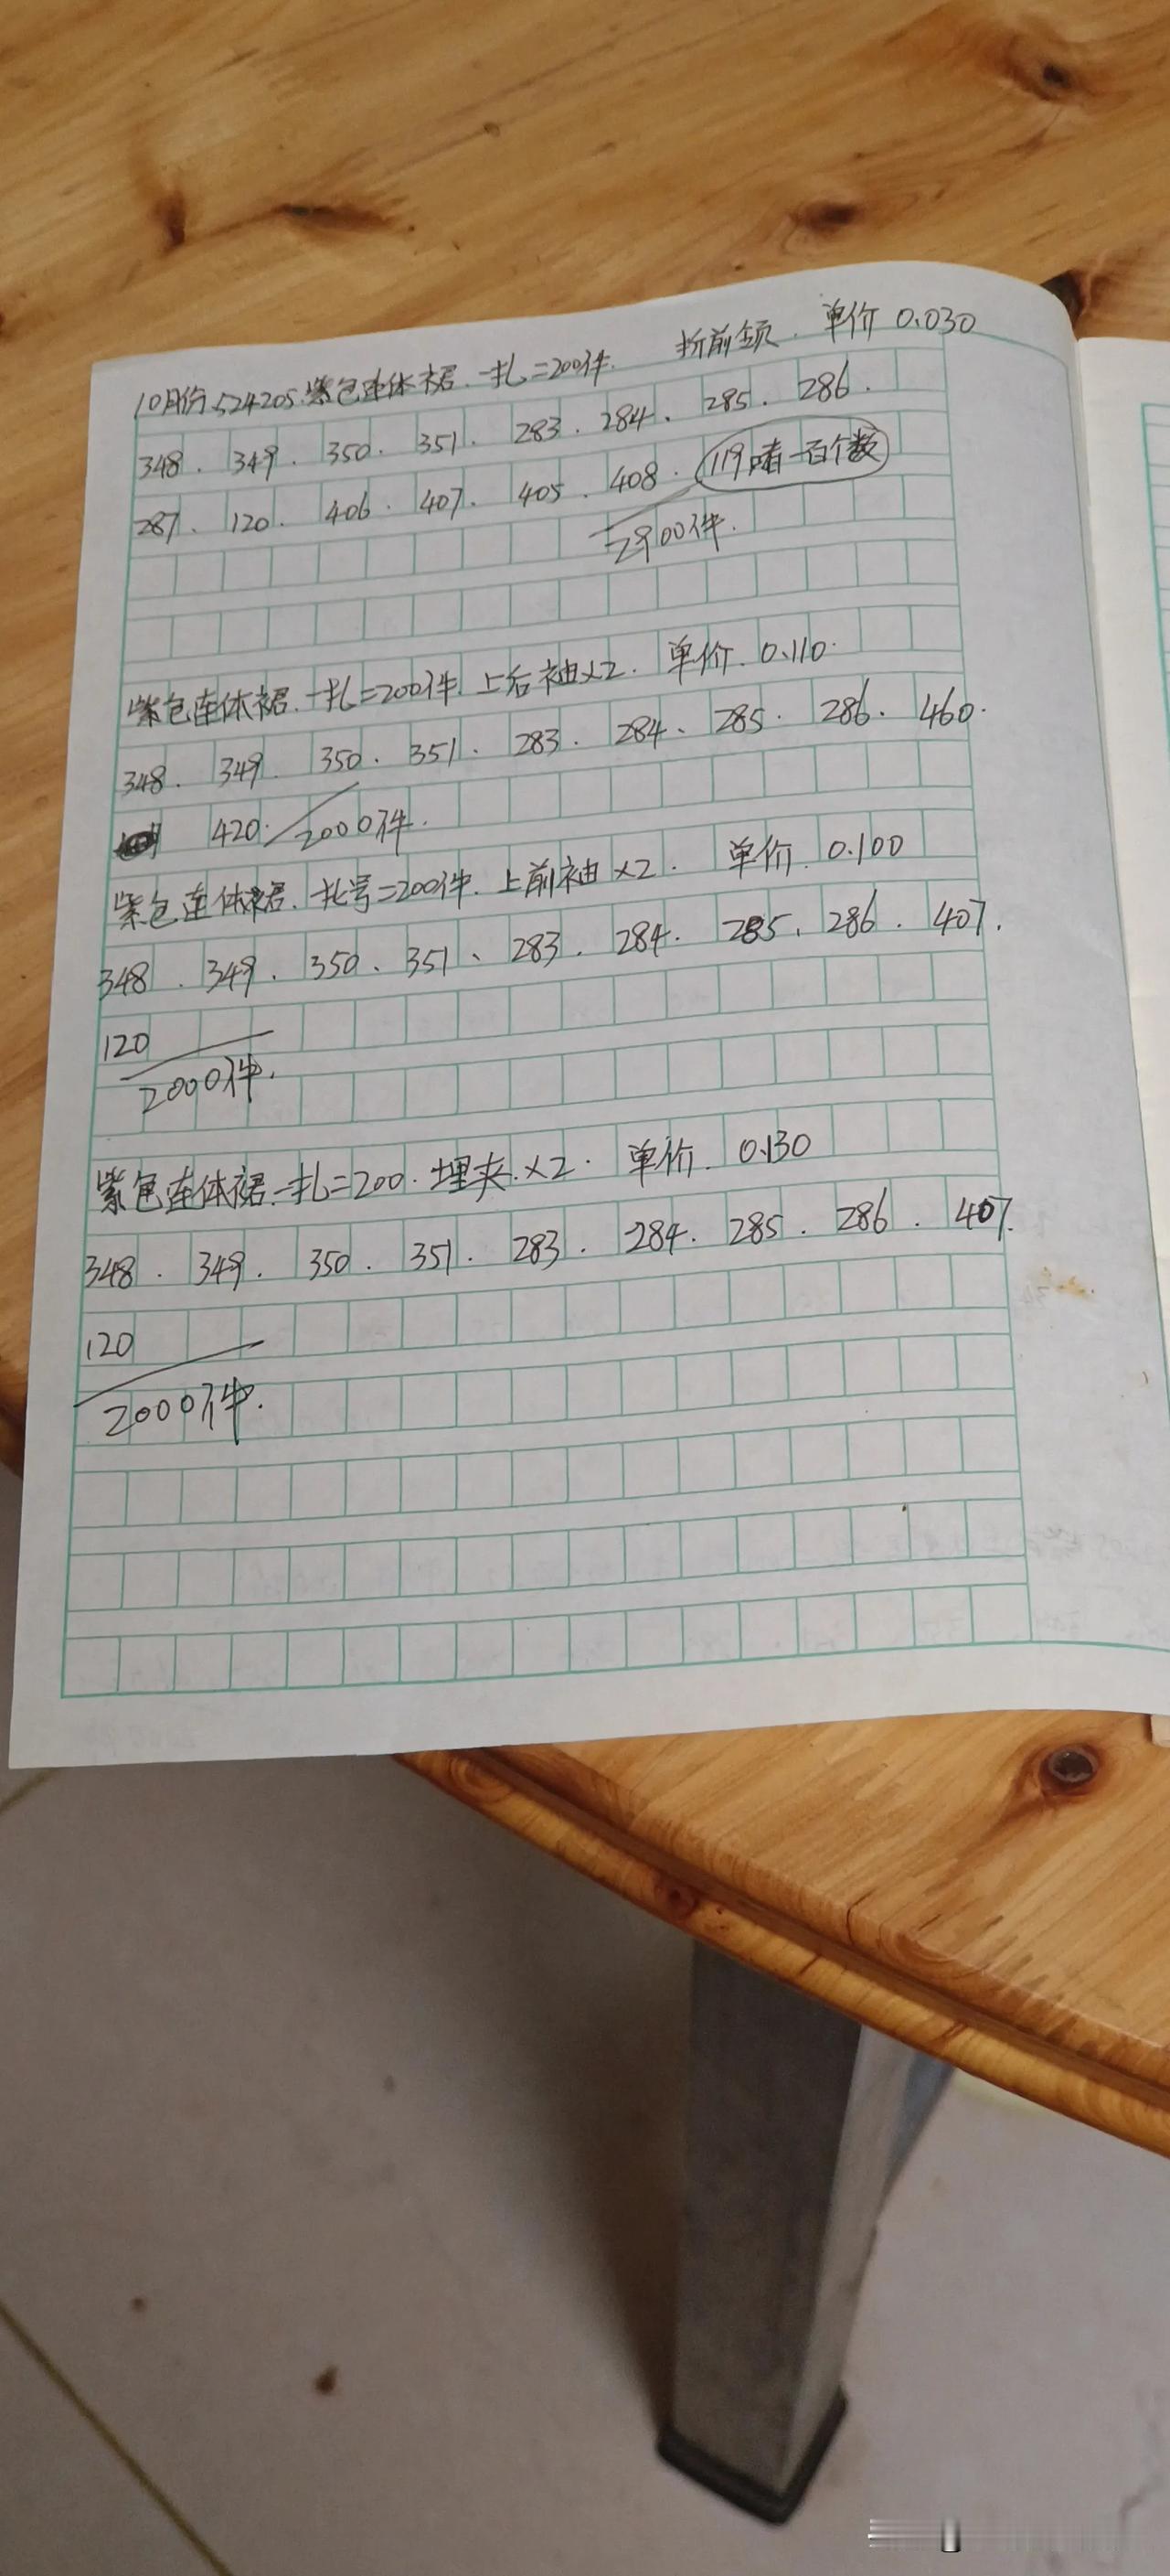 10月份.524205.紫色连体裙.一扎=200件. 折前领.单价0.030
348.349.350.351.283.284.285.286.
287.120.406.407.405.408.119 一百个数
2900件.
紫色连体裙.一扎=200件.上后袖×2.单价.0.110.
348.349.350.351.283.284.285.286.460.
420. 2000件.
紫色连体裙.扎号=200件.上前袖×2.单价.0.100
348.349.350.351.283.284.285.286.407.
120
2000件.
紫色连体裙.一扎=200.埋夹.×2.单价.0.130
348.349.350.351.283.284.285.286.407.
120
2000件.